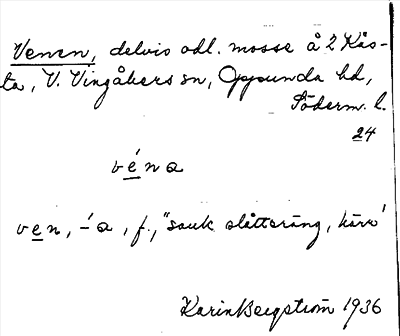 Venen, delvis odl. mosse å 2 Kås-
ta, V. Vingåkers sn, Oppunda hd,
Söderm. l.
24
véna
ven, -´a, f., "sank slåtteräng, kärr'
Karin Bergström 1936